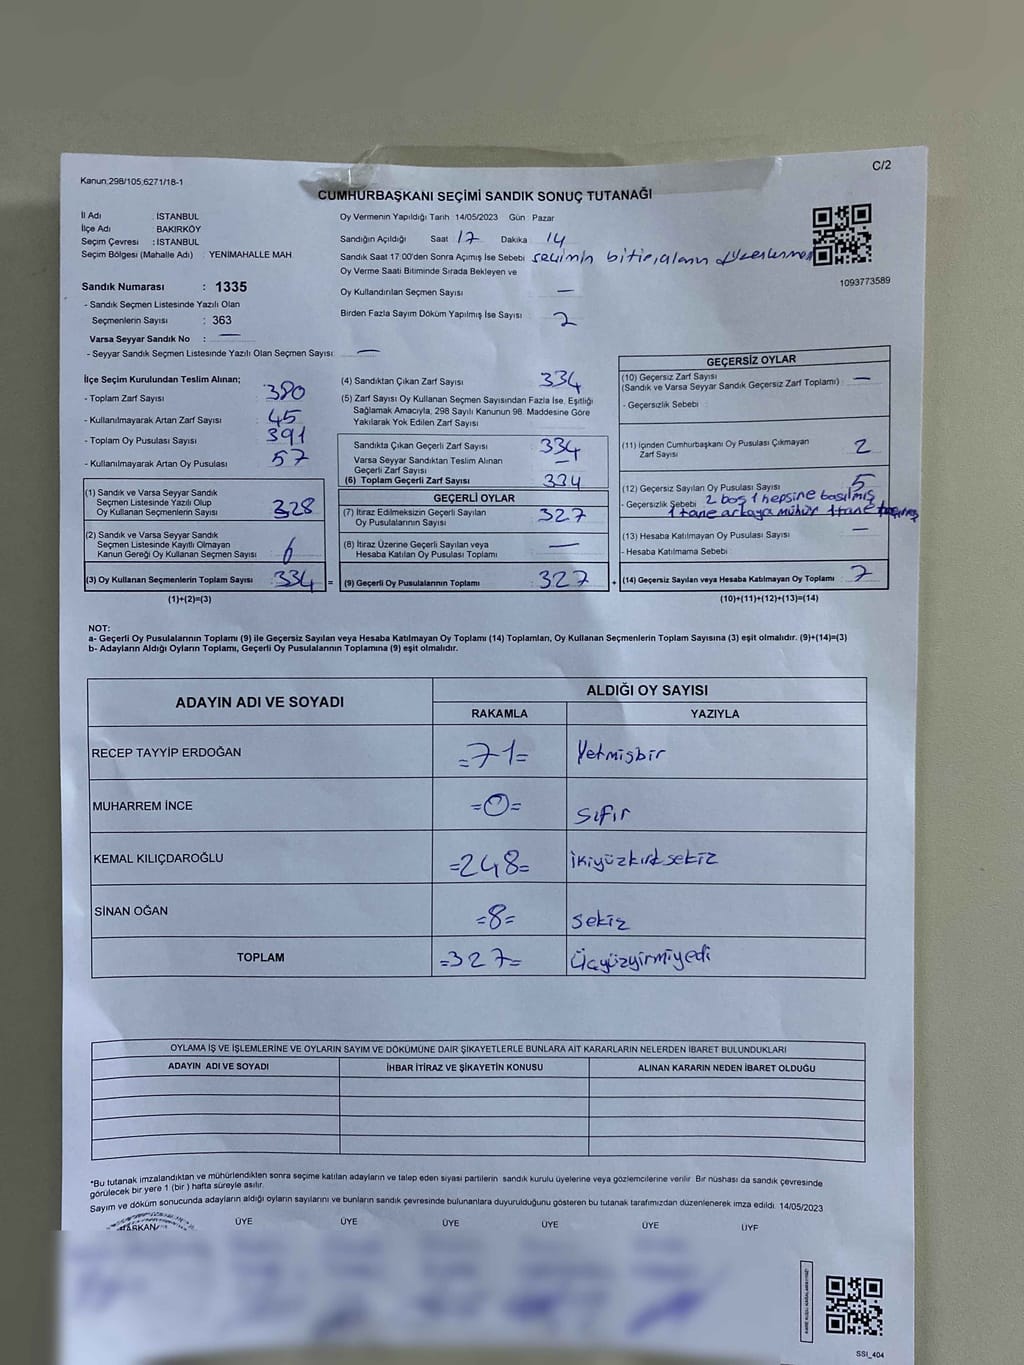 C/2
Kanun;298/105;6271/18-1
CUMHURBAŞKANI SEÇİMİ SANDIK SONUÇ TUTANAĞI
İl Adı : İSTANBUL
İlçe Adı : BAKIRKÖY
Seçim Çevresi : İSTANBUL
Seçim Bölgesi (Mahalle Adı) : YENİMAHALLE MAH.
Oy Vermenin Yapıldığı Tarih 14/05/2023 Gün Pazar
Sandığın Açıldığı Saat 17 Dakika 14
Sandık Saat 17:00'den Sonra Açımış İse Sebebi seçimin
Oy Verme Saati Bitiminde Sırada Bekleyen ve
Oy Kullandırılan Seçmen Sayısı —
Birden Fazla Sayım Döküm Yapılmış İse Sayısı 2
1093773589
Sandık Numarası : 1335
- Sandık Seçmen Listesinde Yazılı Olan
Seçmenlerin Sayısı : 363
Varsa Seyyar Sandık No : —
- Seyyar Sandık Seçmen Listesinde Yazılı Olan Seçmen Sayısı: —
İlçe Seçim Kurulundan Teslim Alınan;
- Toplam Zarf Sayısı 380
- Kullanılmayarak Artan Zarf Sayısı 45
- Toplam Oy Pusulası Sayısı 391
- Kullanılmayarak Artan Oy Pusulası 57
(1) Sandık ve Varsa Seyyar Sandık
Seçmen Listesinde Yazılı Olup
Oy Kullanan Seçmenlerin Sayısı 328
(2) Sandık ve Varsa Seyyar Sandık
Seçmen Listesinde Kayıtlı Olmayan
Kanun Gereği Oy Kullanan Seçmen Sayısı 6
(3) Oy Kullanan Seçmenlerin Toplam Sayısı 334 =
(1)+(2)=(3)
(4) Sandıktan Çıkan Zarf Sayısı 334
(5) Zarf Sayısı Oy Kullanan Seçmen Sayısından Fazla İse, Eşitliği
Sağlamak Amacıyla, 298 Sayılı Kanunun 98. Maddesine Göre
Yakılarak Yok Edilen Zarf Sayısı
Sandıkta Çıkan Geçerli Zarf Sayısı 334
Varsa Seyyar Sandıktan Teslim Alınan
Geçerli Zarf Sayısı —
(6) Toplam Geçerli Zarf Sayısı 334
GEÇERLİ OYLAR
(7) İtiraz Edilmeksizin Geçerli Sayılan
Oy Pusulalarının Sayısı 327
(8) İtiraz Üzerine Geçerli Sayılan veya
Hesaba Katılan Oy Pusulası Toplamı —
(9) Geçerli Oy Pusulalarının Toplamı 327 +
GEÇERSİZ OYLAR
(10) Geçersiz Zarf Sayısı
(Sandık ve Varsa Seyyar Sandık Geçersiz Zarf Toplamı) —
- Geçersizlik Sebebi
(11) İçinden Cumhurbaşkanı Oy Pusulası Çıkmayan
Zarf Sayısı 2
(12) Geçersiz Sayılan Oy Pusulası Sayısı 5
- Geçersizlik Sebebi 2 boş 1 hepsine basılmış
1 tane arkaya mühür 1 tane
(13) Hesaba Katılmayan Oy Pusulası Sayısı —
- Hesaba Katılmama Sebebi
(14) Geçersiz Sayılan veya Hesaba Katılmayan Oy Toplamı 7
(10)+(11)+(12)+(13)=(14)
NOT:
a- Geçerli Oy Pusulalarının Toplamı (9) ile Geçersiz Sayılan veya Hesaba Katılmayan Oy Toplamı (14) Toplamları, Oy Kullanan Seçmenlerin Toplam Sayısına (3) eşit olmalıdır. (9)+(14)=(3)
b- Adayların Aldığı Oyların Toplamı, Geçerli Oy Pusulalarının Toplamına (9) eşit olmalıdır.
ADAYIN ADI VE SOYADI
ALDIĞI OY SAYISI
RAKAMLA YAZIYLA
RECEP TAYYİP ERDOĞAN =71= Yetmişbir
MUHARREM İNCE =0= Sıfır
KEMAL KILIÇDAROĞLU =248= İkiyüzkırksekiz
SİNAN OĞAN =8= Sekiz
TOPLAM =327= Üçyüzyirmiyedi
OYLAMA İŞ VE İŞLEMLERİNE VE OYLARIN SAYIM VE DÖKÜMÜNE DAİR ŞİKAYETLERLE BUNLARA AİT KARARLARIN NELERDEN İBARET BULUNDUKLARI
ADAYIN ADI VE SOYADI İHBAR İTİRAZ VE ŞİKAYETİN KONUSU ALINAN KARARIN NEDEN İBARET OLDUĞU
*Bu tutanak imzalandıktan ve mühürlendikten sonra seçime katılan adayların ve talep eden siyasi partilerin sandık kurulu üyelerine veya gözlemcilerine verilir. Bir nüshası da sandık çevresinde
görülecek bir yere 1 (bir) hafta süreyle asılır.
Sayım ve döküm sonucunda adayların aldığı oyların sayılarını ve bunların sandık çevresinde bulunanlara duyurulduğunu gösteren bu tutanak tarafımızdan düzenlenerek imza edildi. 14/05/2023
BAŞKAN ÜYE ÜYE ÜYE ÜYE ÜYE ÜYE
SSI_404